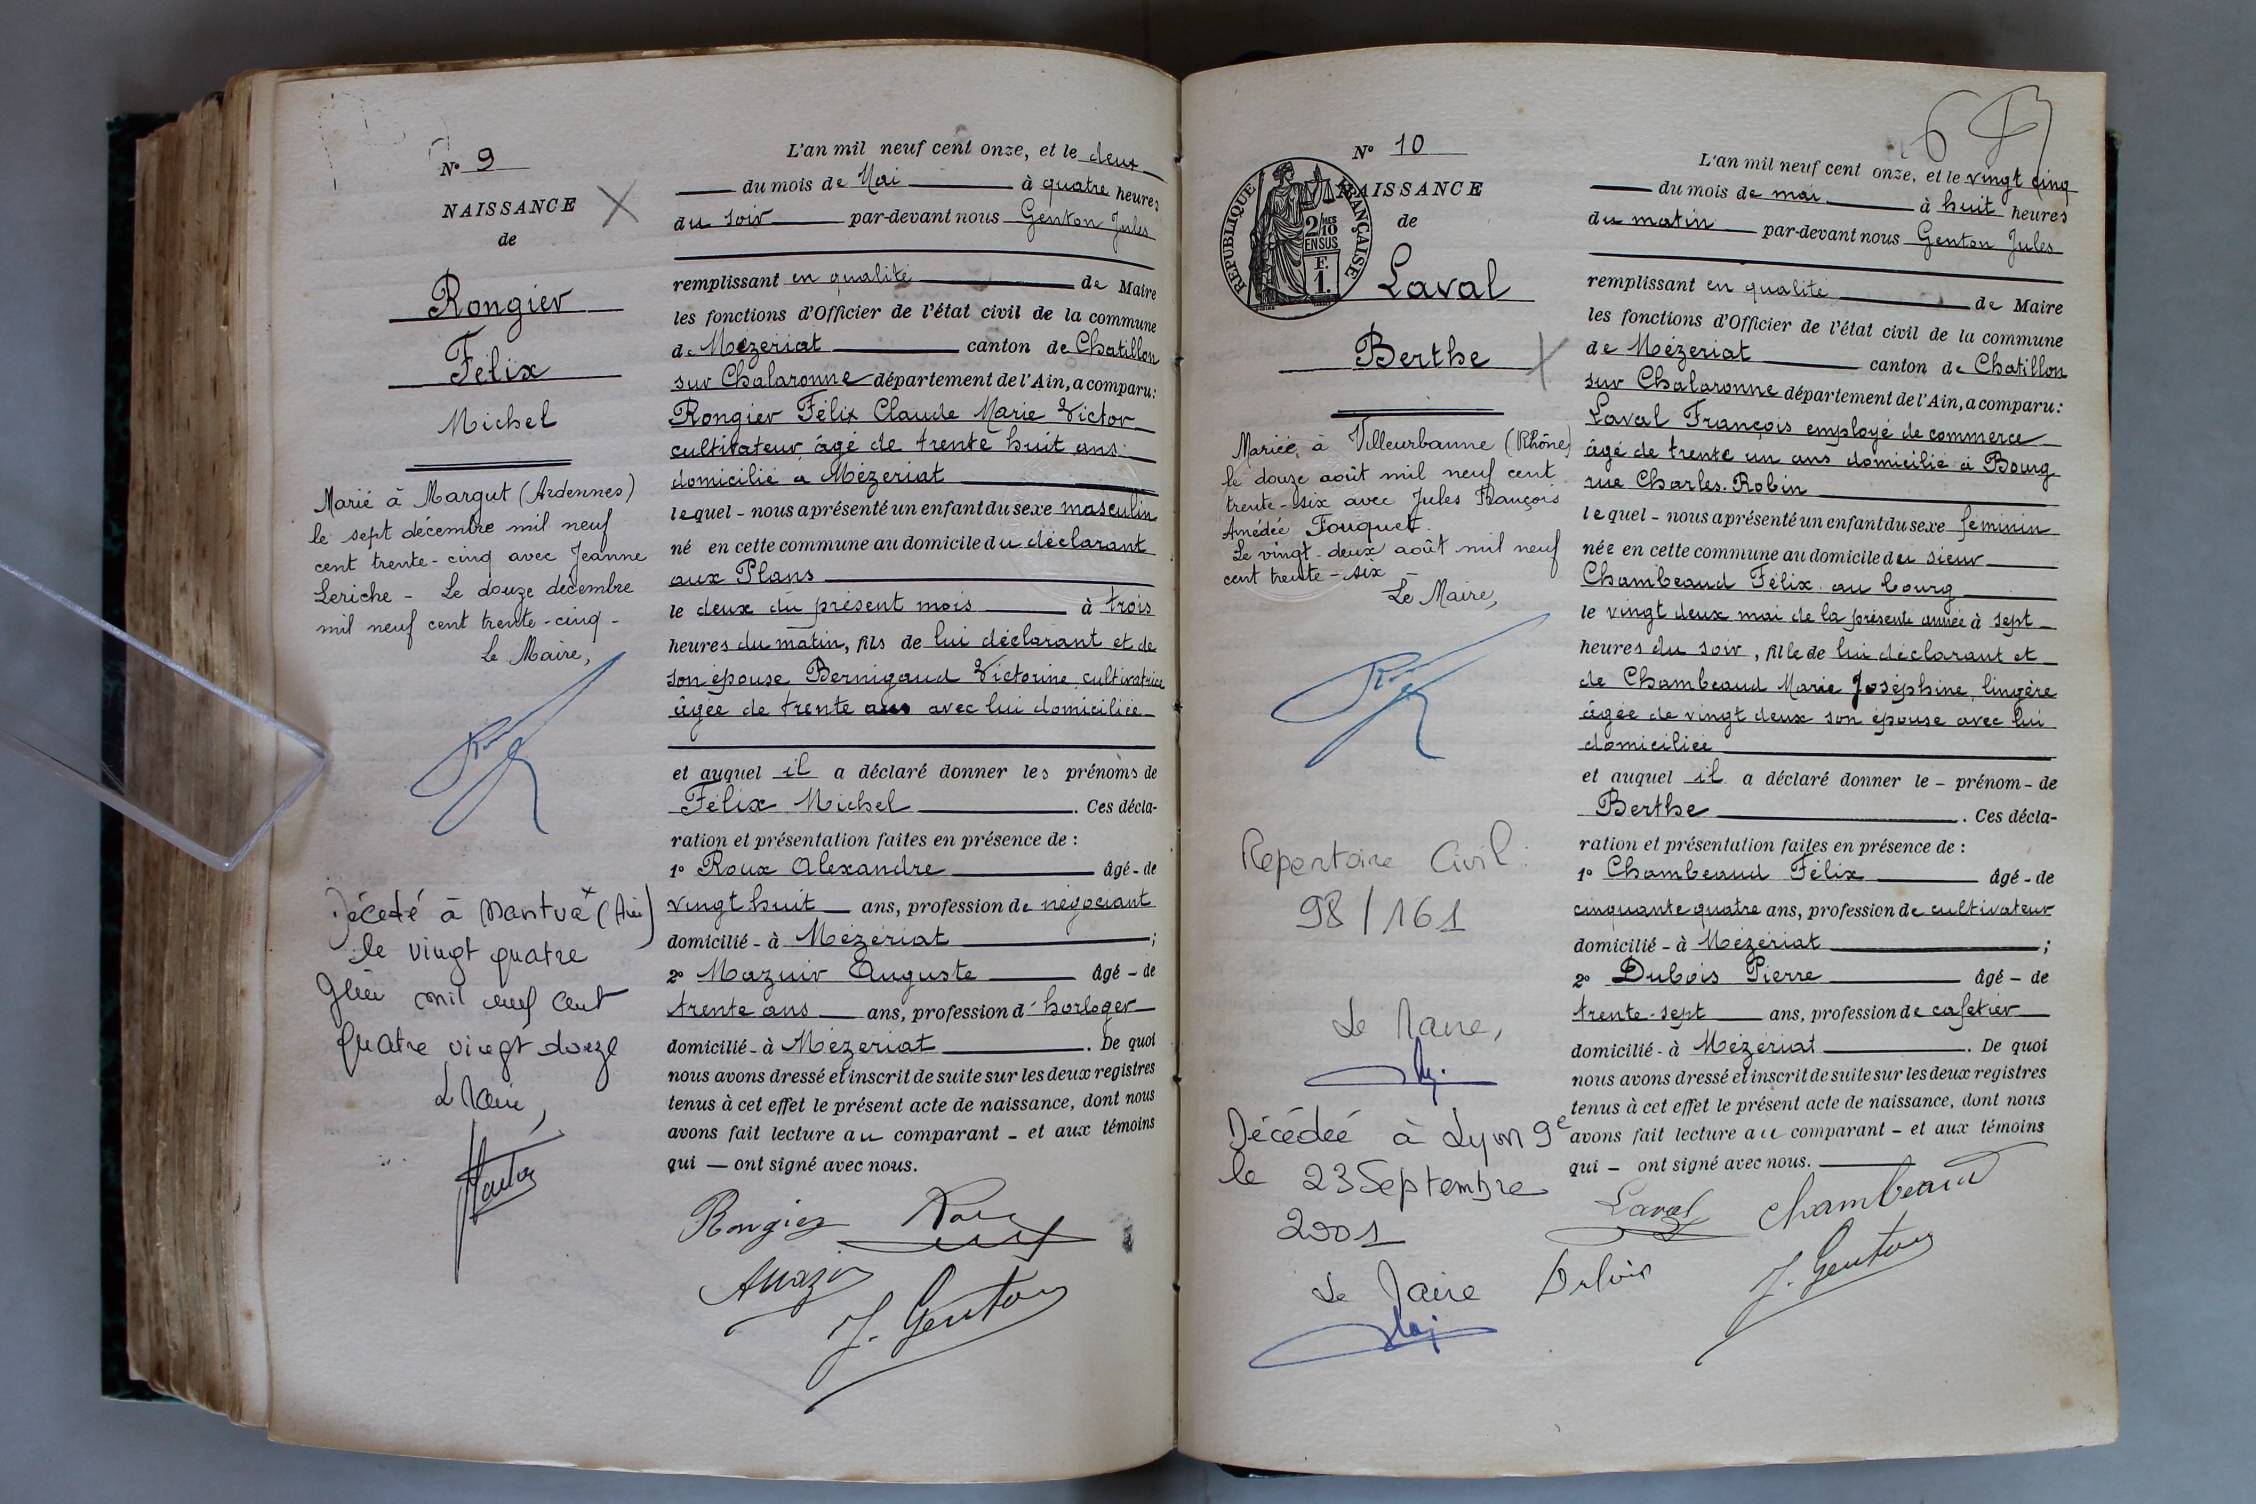 N° 9
NAISSANCE
de
Rongier
Félix
Michel
Marié à Margut (Ardennes)
le sept décembre mil neuf
cent trente-cinq avec Jeanne
Leriche - Le douze décembre
mil neuf cent trente-cinq -
Le Maire,
Décédé à Nantua (Ain)
le vingt quatre
mil neuf cent
quatre vingt douze
Le Maire,
L'an mil neuf cent onze, et le deux
du mois de Mai à quatre heures
du soir par-devant nous Genton Jules
remplissant en qualité de Maire
les fonctions d'Officier de l'état civil de la commune
de Mézériat canton de Chatillon
sur Chalaronne département de l'Ain, a comparu:
Rongier Félix Claude Marie Victor
cultivateur âgé de trente huit ans
domicilié à Mézériat
lequel - nous a présenté un enfant du sexe masculin
né en cette commune au domicile du déclarant
aux Plans
le deux du présent mois à trois
heures du matin, fils de lui déclarant et de
son épouse Bernigaud Victorine, cultivatrice
âgée de trente ans avec lui domiciliée
et auquel il a déclaré donner les prénoms de
Félix Michel. Ces décla-
ration et présentation faites en présence de :
1° Roux Alexandre âgé - de
vingt huit ans, profession de négociant
domicilié - à Mézériat ;
2° Mazuir Auguste âgé - de
trente ans ans, profession d'horloger
domicilié - à Mézériat. De quoi
nous avons dressé et inscrit de suite sur les deux registres
tenus à cet effet le présent acte de naissance, dont nous
avons fait lecture au comparant - et aux témoins
qui — ont signé avec nous.
Rongier Roux
A Mazuir
J. Genton
N° 10
NAISSANCE
de
RÉPUBLIQUE FRANÇAISE
2/10 MES
EN SUS
F.
1.
Laval
Berthe
Mariée à Villeurbanne (Rhône)
le douze août mil neuf cent
trente-six avec Jules François
Amédée Fouquet.
Le vingt-deux août mil neuf
cent trente-six -
Le Maire,
Repertoire Civil
98/161
Le Maire,
Décédée à Lyon 9e
le 23 Septembre
2001
Le Maire
L'an mil neuf cent onze, et le vingt cinq
du mois de mai à huit heures
du matin par-devant nous Genton Jules
remplissant en qualité de Maire
les fonctions d'Officier de l'état civil de la commune
de Mézériat canton de Chatillon
sur Chalaronne département de l'Ain, a comparu:
Laval François employé de commerce
âgé de trente un ans domicilié à Bourg
rue Charles-Robin
lequel - nous a présenté un enfant du sexe féminin
née en cette commune au domicile du sieur
Chambeaud Félix au bourg
le vingt deux mai de la présente année à sept
heures du soir, fille de lui déclarant et
de Chambeaud Marie Joséphine, lingère
âgée de vingt deux son épouse avec lui
domiciliée
et auquel il a déclaré donner le - prénom - de
Berthe. Ces décla-
ration et présentation faites en présence de :
1° Chambeaud Félix âgé - de
cinquante quatre ans, profession de cultivateur
domicilié - à Mézériat ;
2° Dubois Pierre âgé - de
trente-sept ans, profession de cafetier
domicilié - à Mézériat. De quoi
nous avons dressé et inscrit de suite sur les deux registres
tenus à cet effet le présent acte de naissance, dont nous
avons fait lecture au comparant - et aux témoins
qui - ont signé avec nous.
Laval Chambeaud
Dubois J. Genton